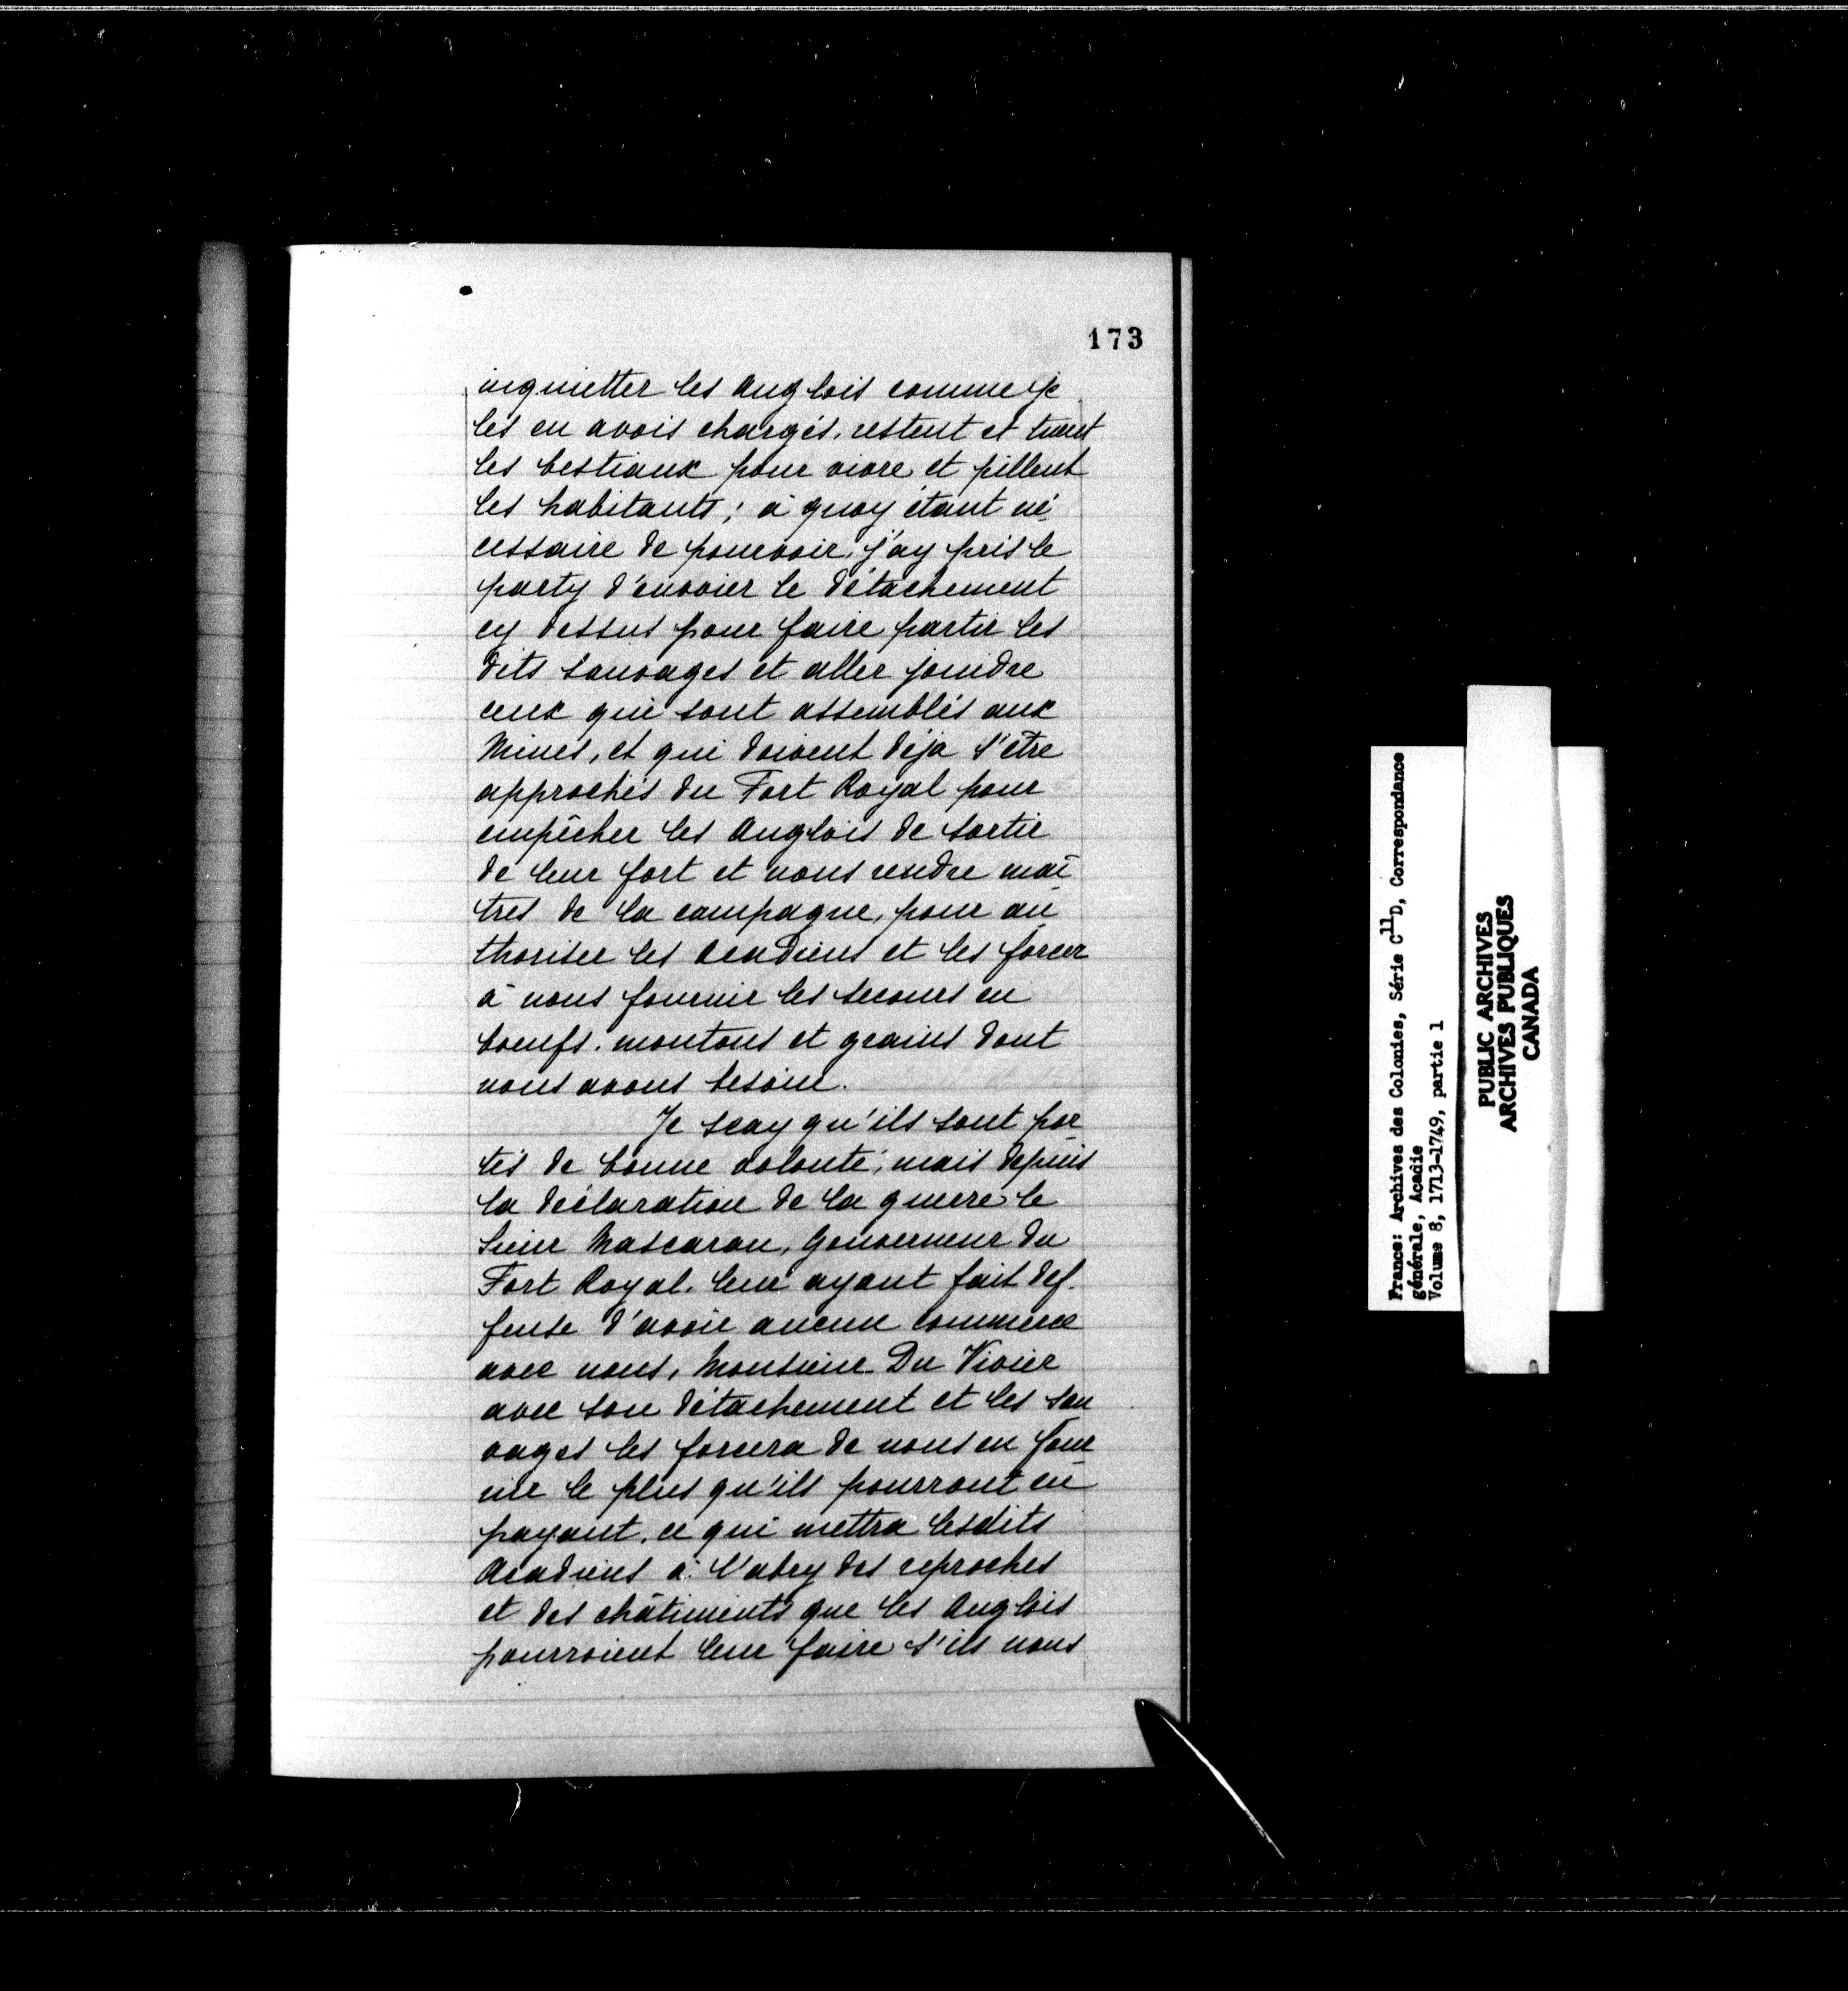 173
inquietter les Anglois comme je
les en avois chargés, restent et tuent
les bestiaux pour vivre et pillent
les habitants; à quoy étant né
cessaire de pourvoir, j'ay pris le
party d'envoier le détachement
cy dessus pour faire partir les
dits sauvages et aller joindre
ceux qui sont assemblés aux
Mines, et qui doivent déja s'être
approchés du Fort Royal pour
empêcher les Anglois de sortir
de leur fort et nous rendre maî
tres de la campagne, pour au
thoriser les Acadiens et les forcer
à nous fournir les secours en
boeufs, moutons et grains dont
nous avons besoin.
Je scay qu'ils sont por
tés de bonne volonté, mais depuis
la déclaration de la guerre le
Sieur Mascaran, Gouverneur du
Fort Royal, leur ayant fait def
fense d'avoir aucun commerce
avec nous, Monsieur Du Vivier
avec son détachement et les sau
vages les forcera de nous en four
nir le plus qu'ils pourront en
payant, ce qui mettra lesdits
Acadiens à l'abry des reproches
et des châtiments que les Anglois
pourroient leur faire s'ils nous
France: Archives des Colonies, Série C11D, Correspondance
générale, Acadie
Volume 8, 1713-1749, partie 1
PUBLIC ARCHIVES
ARCHIVES PUBLIQUES
CANADA